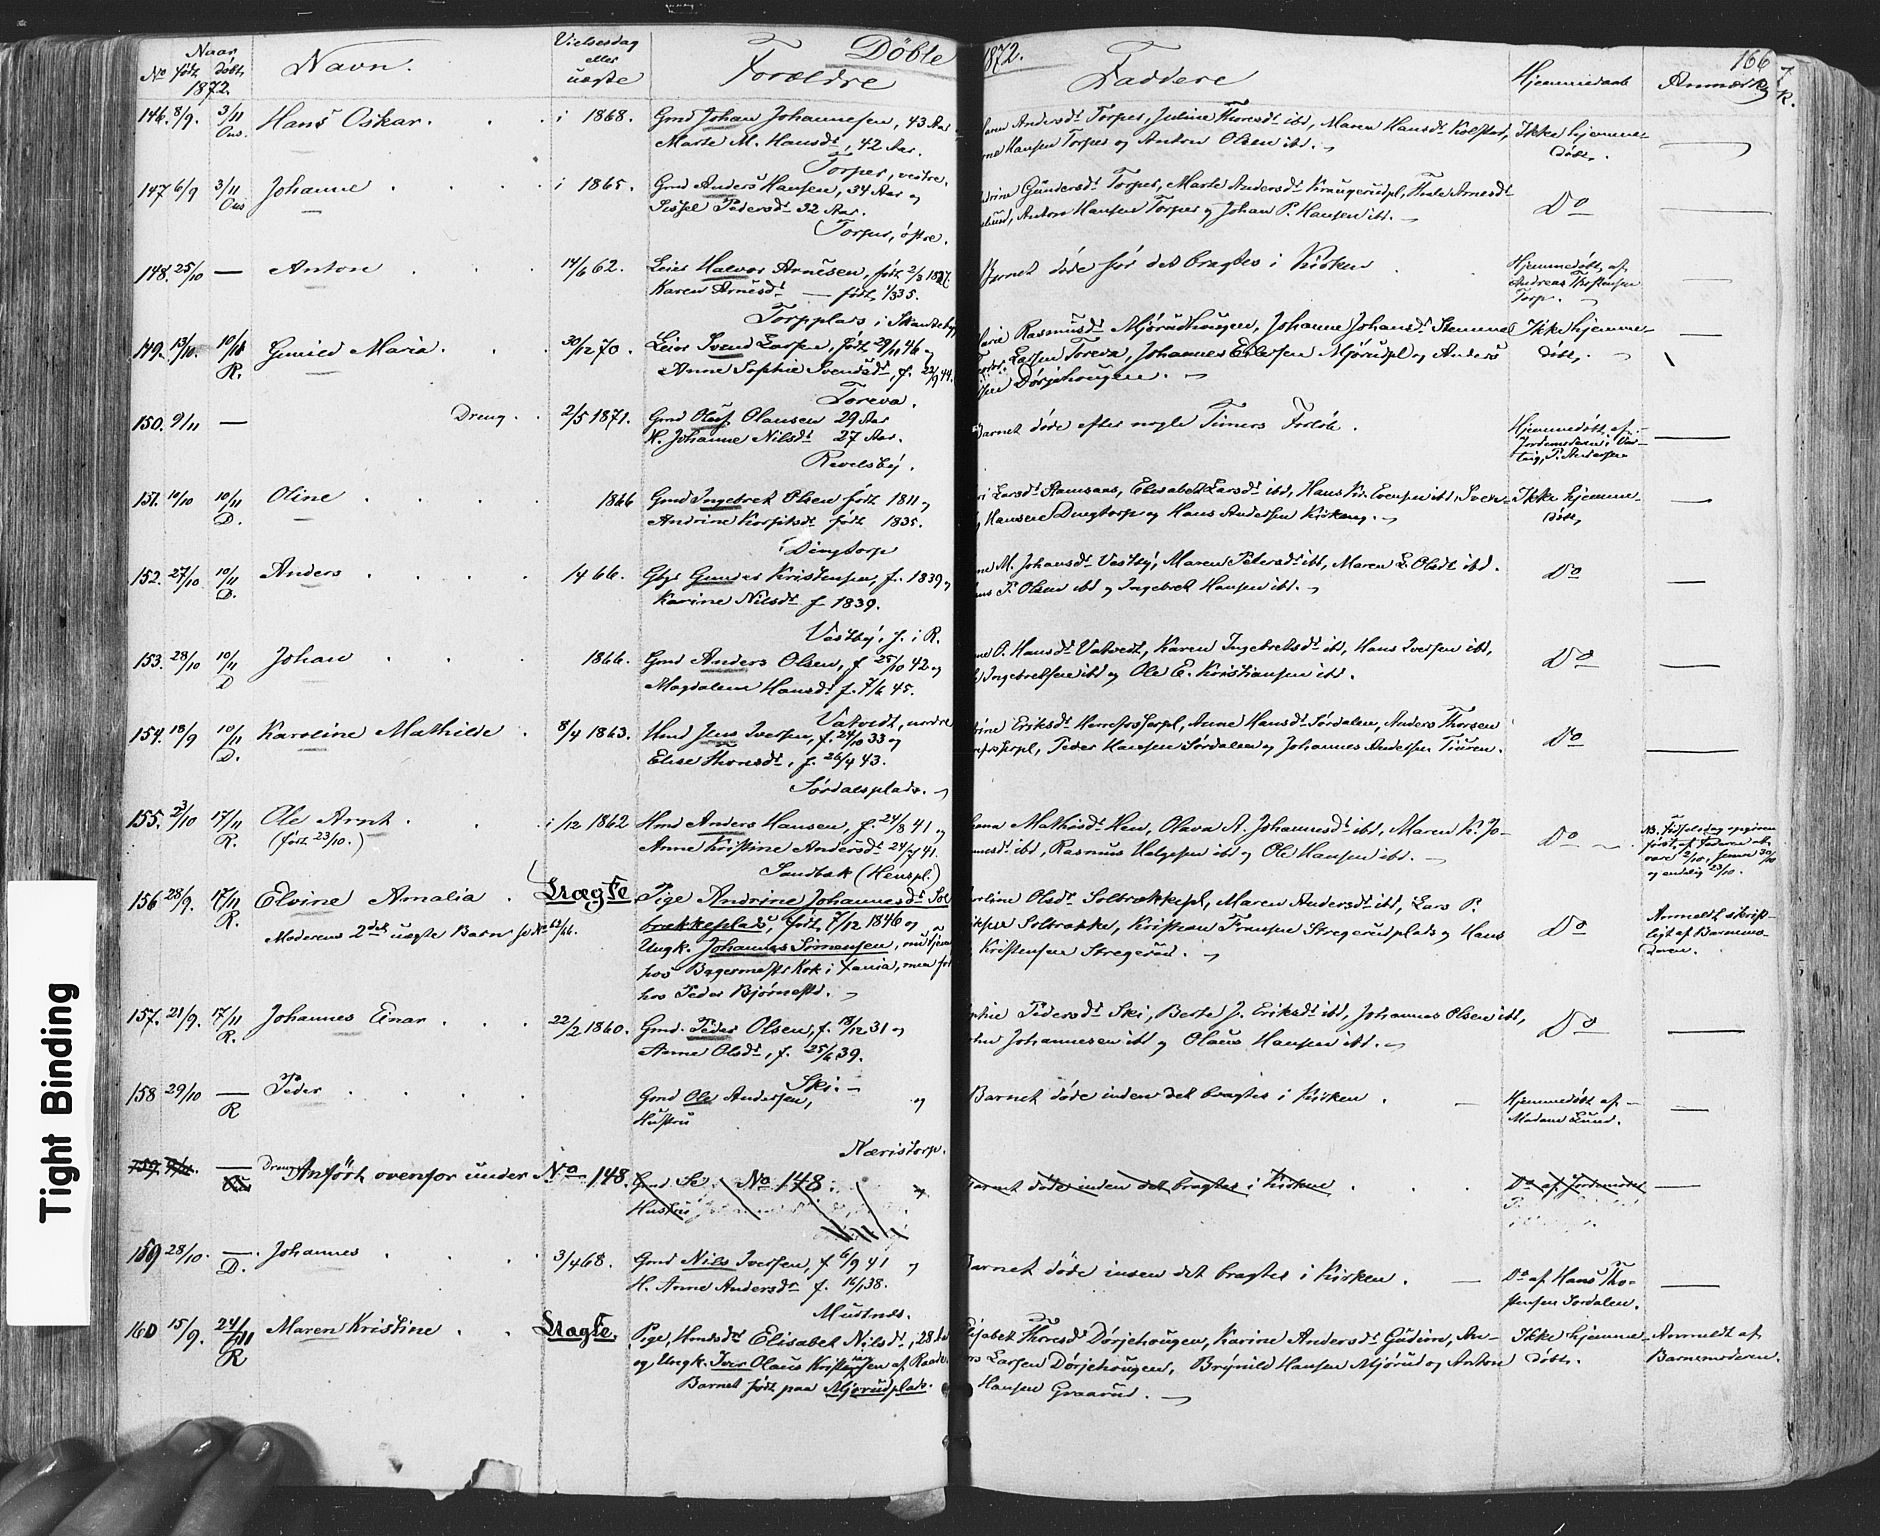 Døbte 1872.
166
No
Naar født døbt 1872.
Navn.
Vielsesdag eller uægte
Forældre
Faddere
Hjemmedaab
Anmærkg
146. 8/9. 3/11 Ons. Hans Oskar. i 1868. Gmd Johan Johannesen, 43 Aar
Marte M. Hansdt, 42 Aar.
Torper, vestre.
Andersdt Torper, Juline Thoresdt ibd, Maren Hansdt Kolstad,
Hansen Torper og Anton Olsen ibd.
Ikke hjemme-
døbt.
147 6/9 3/11 Ons Johanne i 1865. Gmd Anders Hansen, 34 Aar og
Sissel Pedersdt 32 Aar.
Torper, østre.
Gundersdt Torper, Marte Andersdt Kraugerudpl, Thale Arnesdt
Anton Hansen Torper og Johan P. Hansen ibt.
Do
148. 25/10 — Anton 14/6 62. Leier Halvor Arnesen, født 2/3 1837.
Karen Arnesdt — født 1/3 35.
Torpplads i Skandseby
Barnet døde før det bragtes i Kirken
Hjemmedøbt af
Andreas Thostensen
Torp.
149. 13/10. 10/11 R. Gunild Maria. 30/12 70. Leier Svend Larsen, født 29/11 46 og
Anne Sophie Svendsdt, f. 22/9 44.
Toreva.
Rasmusdt Mjørudhougen, Johanne Johansdt Stemme
Larsen Toreva, Johannes Eilersen Mjørudpl og Anders
Dørjehougen.
Ikke hjemme-
døbt,
150. 9/11 — Dreng. 2/5 1871. Gmd Oluf Olausen 29 Aar
H. Johanne Nilsdt 27 Aar.
Revelsby.
Barnet døde efter nogle Timers Forløb.
Hjemmedøbt af
Jordemoderen i Var-
teig, P. Andersen
151. 10/10 10/11 D. Oline 1866 Gmd Ingebret Olsen født 1811 og
Andrine Korfitsdt født 1835.
Dingtorp
Larsdt Aamsaas, Elisabet Larsdt ibd, Hans Kr. Evensen ibd, Sven-
Hansen Dingtorp og Hans Andersen Kirkeng.
Ikke hjemme-
døbt,
152. 27/10 10/11 D. Anders 14 66. Gbgr Gunder Kristensen, f. 1839 og
Karine Nilsdt f 1839.
Vestby, f. i R.
M. Johansdt Vestby, Maren Petersdt ibt, Maren L. Olsdt ibd.
P. Olsen ibd og Ingebret Hansen ibd.
Do
153. 28/10 10/11 D Johan 1866. Gmd Anders Olsen, f 25/10 42 og
Magdalene Hansdt f. 7/6 45.
Vatvedt, nordre
O. Hansdt Vatvedt, Karen Ingebretsdt ibt, Hans Iversen ibd,
Ingebretsen ibd og Ole E. Kristiansen ibd.
Do
154. 18/9 10/11 D. Karoline Mathilde 8/4 1863. Hmd Jens Iversen, f. 24/10 33 og
Elise Thoresdt, f. 26/4 43.
Sørdalsplads.
Eriksdt Herrefosserpl, Anne Hansdt Sørdalen, Anders Thorsen
Peder Hansen Sørdalen og Johannes Andersen Tiuren.
Do
155. 2/10 17/11 R. Ole Arnt. i /12 1862 Hmd Anders Hansen, f. 24/8 41 og
(født 23/10.)
Anne Kristine Andersdt 24/7 41.
Sandbak (Henspl.)
Mathisdt Hen, Olava A. Johannesdt ibt, Maren K. Jo-
ibd, Rasmus Helgesen ibd og Ole Hansen ibd.
Do
NB. Fødselsdag opgiven
først af Faderen at
være 2/10, senere 30/10
og endelig 23/10.
156 28/9. 17/11 R. Elvine Amalia Uægte Pige Andrine Johannesdt Sol
brækkeplads, født 7/12 1846 og
Moderens 2det uægte Barn se No 63/66.
Ungk. Johannes Simensen, nu tjener
hos Bagermester Kok i Xania, men før
hos Peder Bjørnestd.
Olsdt Solbrækkepl, Maren Andersdt ibd, Lars P.
Solbrække, Kristian Fransen Stregerudplads og Hans
Kristensen Stregerud.
Do
Anmeldt skrift-
ligt af Barnemo-
deren.
157. 21/9. 17/11 R. Johannes Einar 22/2 1860. Gmd. Peder Olsen, f. 18/12 31 og
Anne Olsdt, f. 25/6 39.
Ski.
Pedersdt Ski, Berte J. Eriksdt ibd, Johannes Olsen ibd,
Johannesen ibd og Olaus Hansen ibd.
Do
158 29/10 — R Peder Gmd Ole Andersen, og
Hustru
Næristorp.
Barnet døde inden det bragtes i Kirken.
Hjemmedøbt af
Madame Lund.
159. — Dreng Anført ovenfor under No 148. Gmd Se No 148.
Hustru
Barnet døde inden det bragtes i Kirken
Do af Jordemoder
159 28/10. — D. Johannes 3/4 68. Gmd Nils Iversen, f 6/9 41 og
H. Anne Andersdt f. 16/1 38.
Mustnes.
Barnet døde innen det bragtes i Kirken.
Do af Hans Tho-
stensen Sørdalen.
160 15/9. 24/11 R Maren Kristine Uægte. Pige, Hmdsdt Elisabet Nilsdt, 28
og Ungk. Iver Olaus Kristiansen af Raade.
Barnet født paa Mjørudplads.
Thoresdt Dørjehougen, Karine Andersdt Gudim, An-
Larsen Dørjehougen, Brynild Hansen Mjørud og Anton
Hansen Graarud.
Ikke hjemme-
døbt.
Anmeldt af
Barnemoderen.
Tight Binding